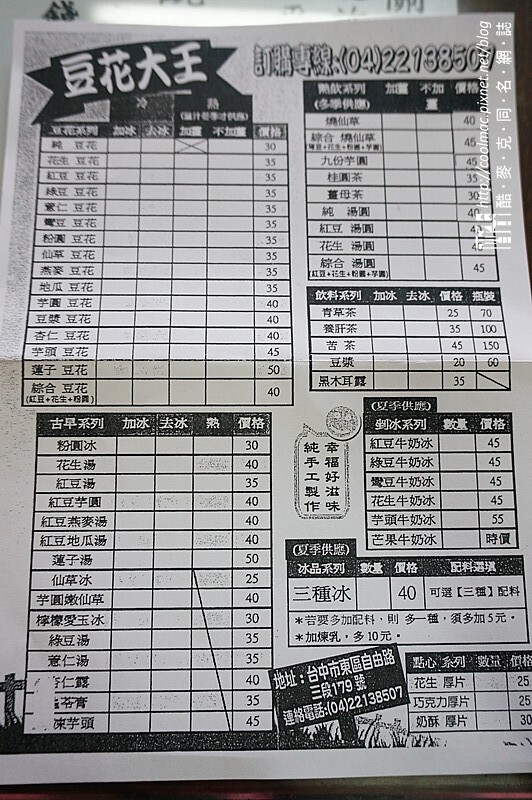 豆花大王
訂購專線:(04)22138507
冷 熱
豆花系列 加冰 去冰 加薑 不加薑 價格
純 豆花 30
花生 豆花 35
紅豆 豆花 35
綠豆 豆花 35
薏仁 豆花 35
鸞豆 豆花 35
粉圓 豆花 35
仙草 豆花 35
燕麥 豆花 35
地瓜 豆花 35
芋圓 豆花 40
豆漿 豆花 40
杏仁 豆花 40
芋頭 豆花 45
蓮子 豆花 50
綜合 豆花 40
(紅豆+花生+粉圓)
熱飲系列 加薑 不加薑 價格
(冬季供應)
燒仙草 40
綜合 燒仙草 45
九份芋圓 45
桂圓茶 35
薑母茶 30
純 湯圓
紅豆 湯圓
花生 湯圓
綜合 湯圓 45
(紅豆+花生+粉圓+芋圓)
飲料系列 加冰 去冰 價格 瓶裝
青草茶 25 70
養肝茶 35 100
苦茶 45 150
豆漿 20 60
黑木耳露 35
古早系列 加冰 去冰 熱 價格
粉圓冰 30
花生湯 40
紅豆湯 35
紅豆芋圓 40
紅豆燕麥湯 40
紅豆地瓜湯 40
蓮子湯 50
仙草冰 25
芋圓嫩仙草 40
檸檬愛玉冰 30
綠豆湯 35
薏仁湯 35
杏仁露 40
苓膏 35
凍芋頭 45
幸福好滋味
純手工製作
(夏季供應)
剉冰系列 數量 價格
紅豆牛奶冰 45
綠豆牛奶冰 45
鸞豆牛奶冰 45
花生牛奶冰 45
芋頭牛奶冰 55
芒果牛奶冰 時價
(夏季供應)
冰品系列 數量 價格 配料選填
三種冰 40 可選【三種】配料
*若要多加配料，則 多一種，須多加5元。
*加煉乳，多10元。
地址：台中市東區自由路
三段179號
連絡電話:(04)22138507
點心 系列 數量 價格
花生 厚片 25
巧克力厚片 25
奶酥 厚片 30
http://coolmac.pixnet.net/blog
酷・麥・克・同・名・網・誌